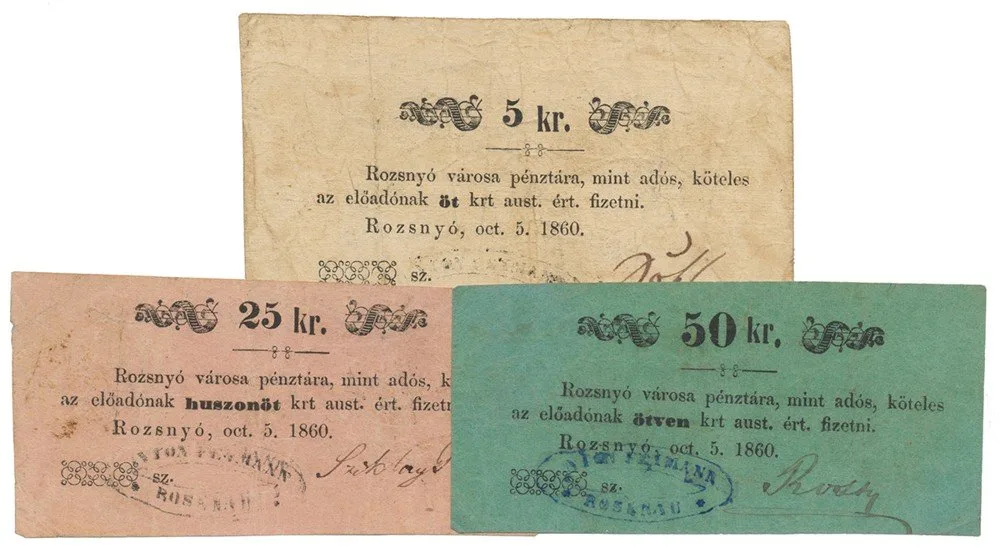 5 kr.
Rozsnyó városa pénztára, mint adós, köteles
az előadónak öt krt aust. ért. fizetni.
Rozsnyó, oct. 5. 1860.
sz.
25 kr.
Rozsnyó városa pénztára, mint adós, k
az előadónak huszonöt krt aust. ért. fizetn
Rozsnyó, oct. 5. 1860.
sz.
ROSENAU
50 kr.
Rozsnyó városa pénztára, mint adós, köteles
az előadónak ötven krt aust. ért. fizetni.
Rozsnyó, oct. 5. 1860.
sz.
ROSENAU